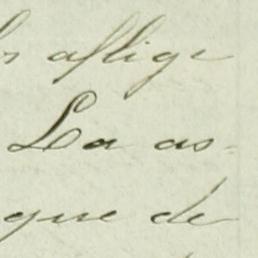 aflige
La as-
que de